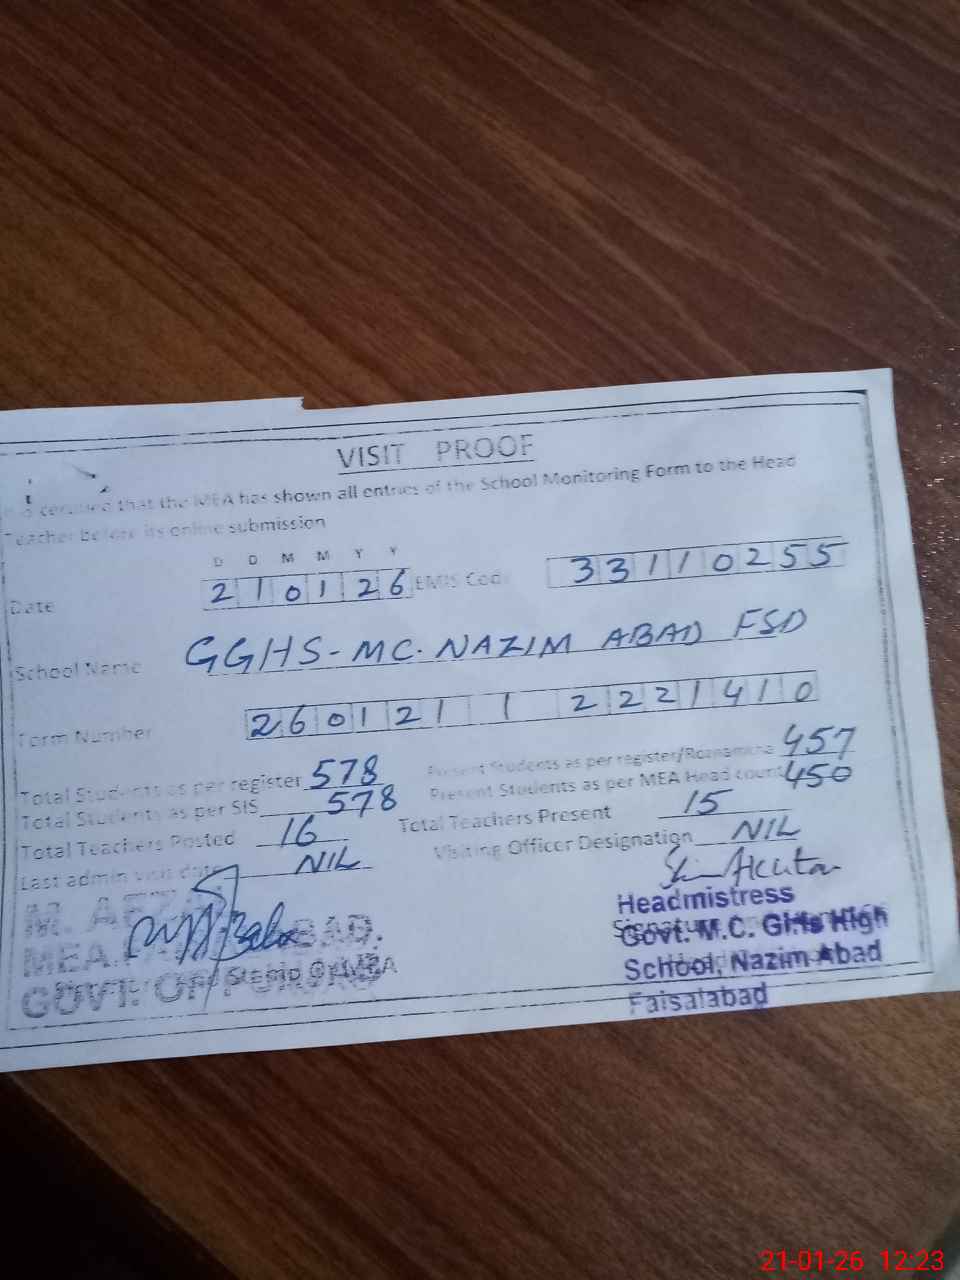 VISIT PROOF
It is certified that the MEA has shown all entries of the School Monitoring Form to the Head
Teacher before its online submission
D D M M Y Y
Date 210126 EMIS Code 33110255
School Name GGHS-MC. NAZIM ABAD FSD
Form Number 260121 1 2221410
Total Students as per register 578 Present Students as per register/Roznamcha 457
Total Students as per SIS 578 Present Students as per MEA Head count 450
Total Teachers Posted 16 Total Teachers Present 15
Last admin visit date NIL Visiting Officer Designation NIL
Headmistress
M. AFZAL
Govt. M.C. Girls High
MEA
School, Nazim Abad
Stamp of MEA
GOVT. OF
Faisalabad
21-01-26 12:23